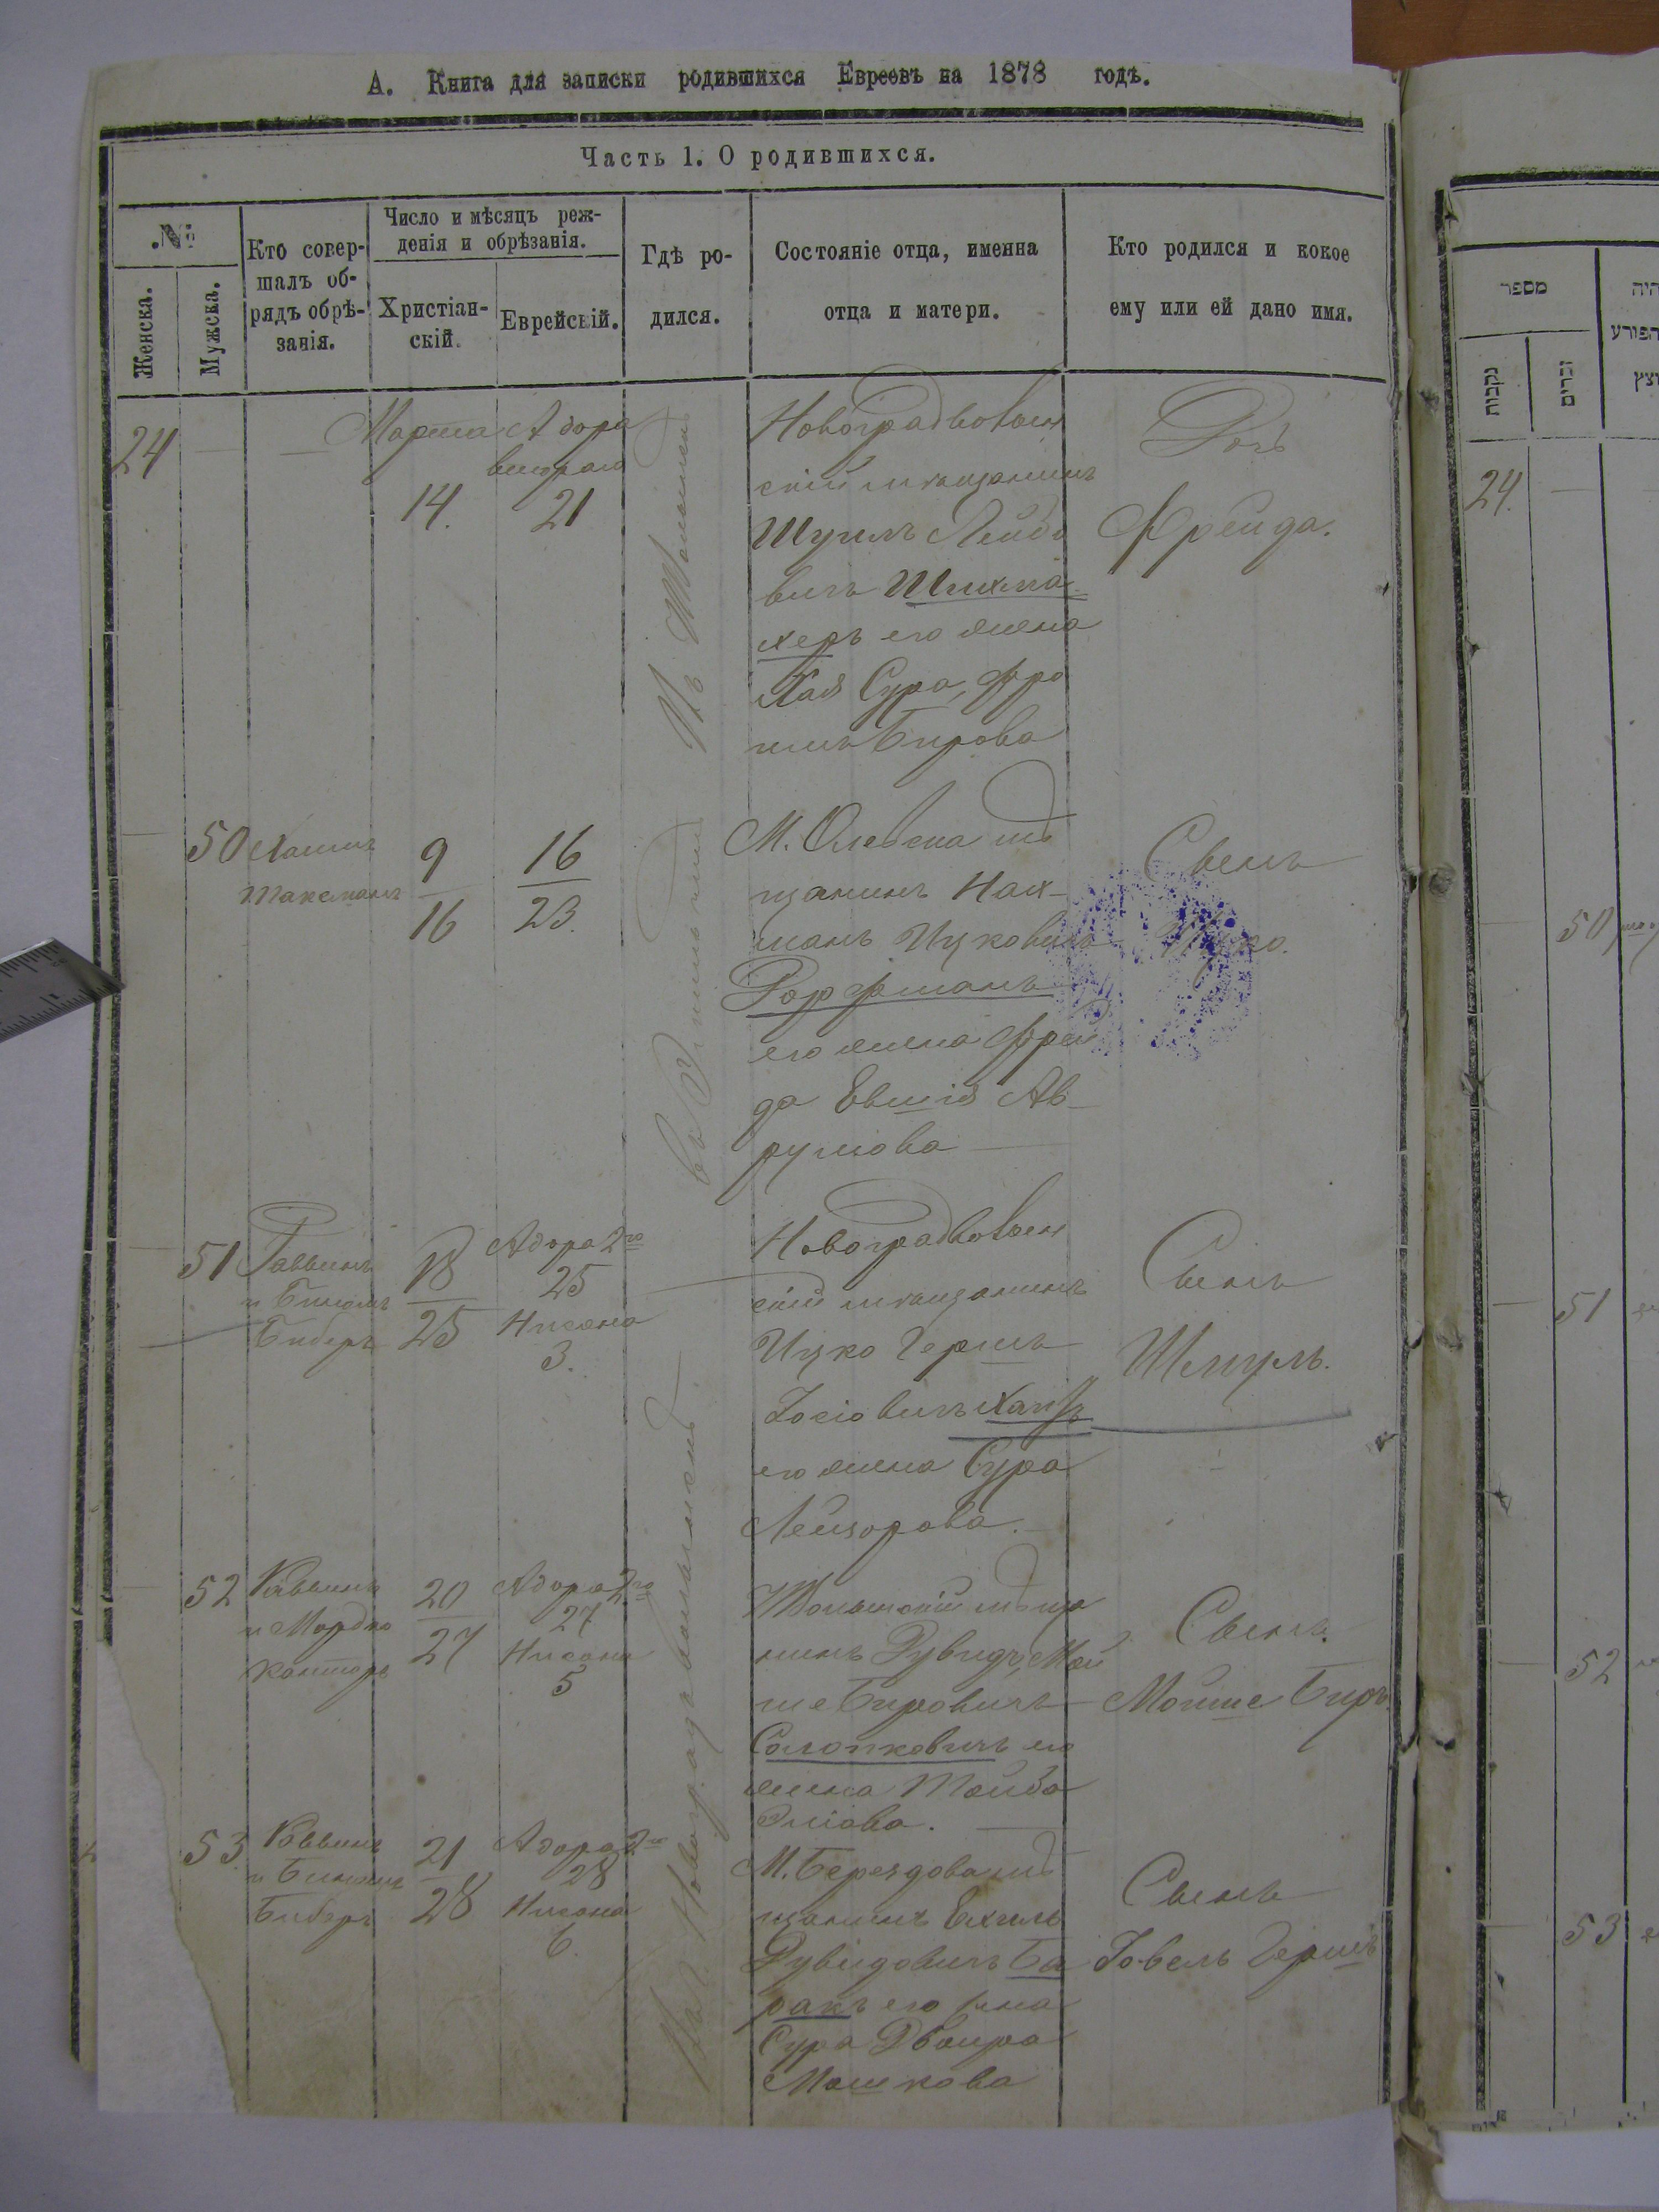 А. Книга для записки родившихся Евреевъ на 1878 годъ.
Часть 1. О родившихся.
№
Женска.
Мужска.
Кто совер-
шалъ об-
рядъ обрѣ-
занія.
Число и мѣсяцъ реж-
денія и обрѣзанія.
Христіан-
скій.
Еврейскій.
Гдѣ ро-
дился.
Состояніе отца, именна
отца и матери.
Кто родился и кокое
ему или ей дано имя.
24
Марта
14.
Адора
втораго
21
Новоградволын
скій мѣщанинъ
Шулиъ Лейбо
вичъ Шихма
херъ его жена
Хая Сура, Фро
имъ Бирова
Дочь
Фрейда.
50
Хаимъ
Таксманъ
9
16
16
23.
М. Олевска мѣ
щанинъ Нах-
манъ Ицковичъ
Рорфманъ
его жена Фрей
да Евшія Ав-
румова
Сынъ
Ицко.
51
Раввинъ
и Бинюмъ
Биберъ
18
25
Адора 2го
25
Нисона
3.
Новоградволын
скій мѣщанинъ
Ицко Гершъ
Іосіовичъ
его жена Сура
Лейзорова.
Сынъ
Шмулъ.
52
Раввинъ
и Мордко
Канторъ
20
27
Адора 2го
27
Нисона
5
мѣща
нинъ Дувидъ, Мой
ше Бировичъ
его
жена Тайба
Эліова.
Сынъ.
Мойше Биръ.
53
Раввинъ
и Бинюмъ
Биберъ
21
28
Адора 2го
28
Нисона
6.
М. Берездова мѣ
щанинъ Ехилъ
Дувидовичъ Ба
ракъ его жена
Сура Двойра
Мошкова
Сынъ
Іовель Гершъ
въ г. Новоградволынскѣ
מספר
נקבות
זכרים
24.
50
51
52
53